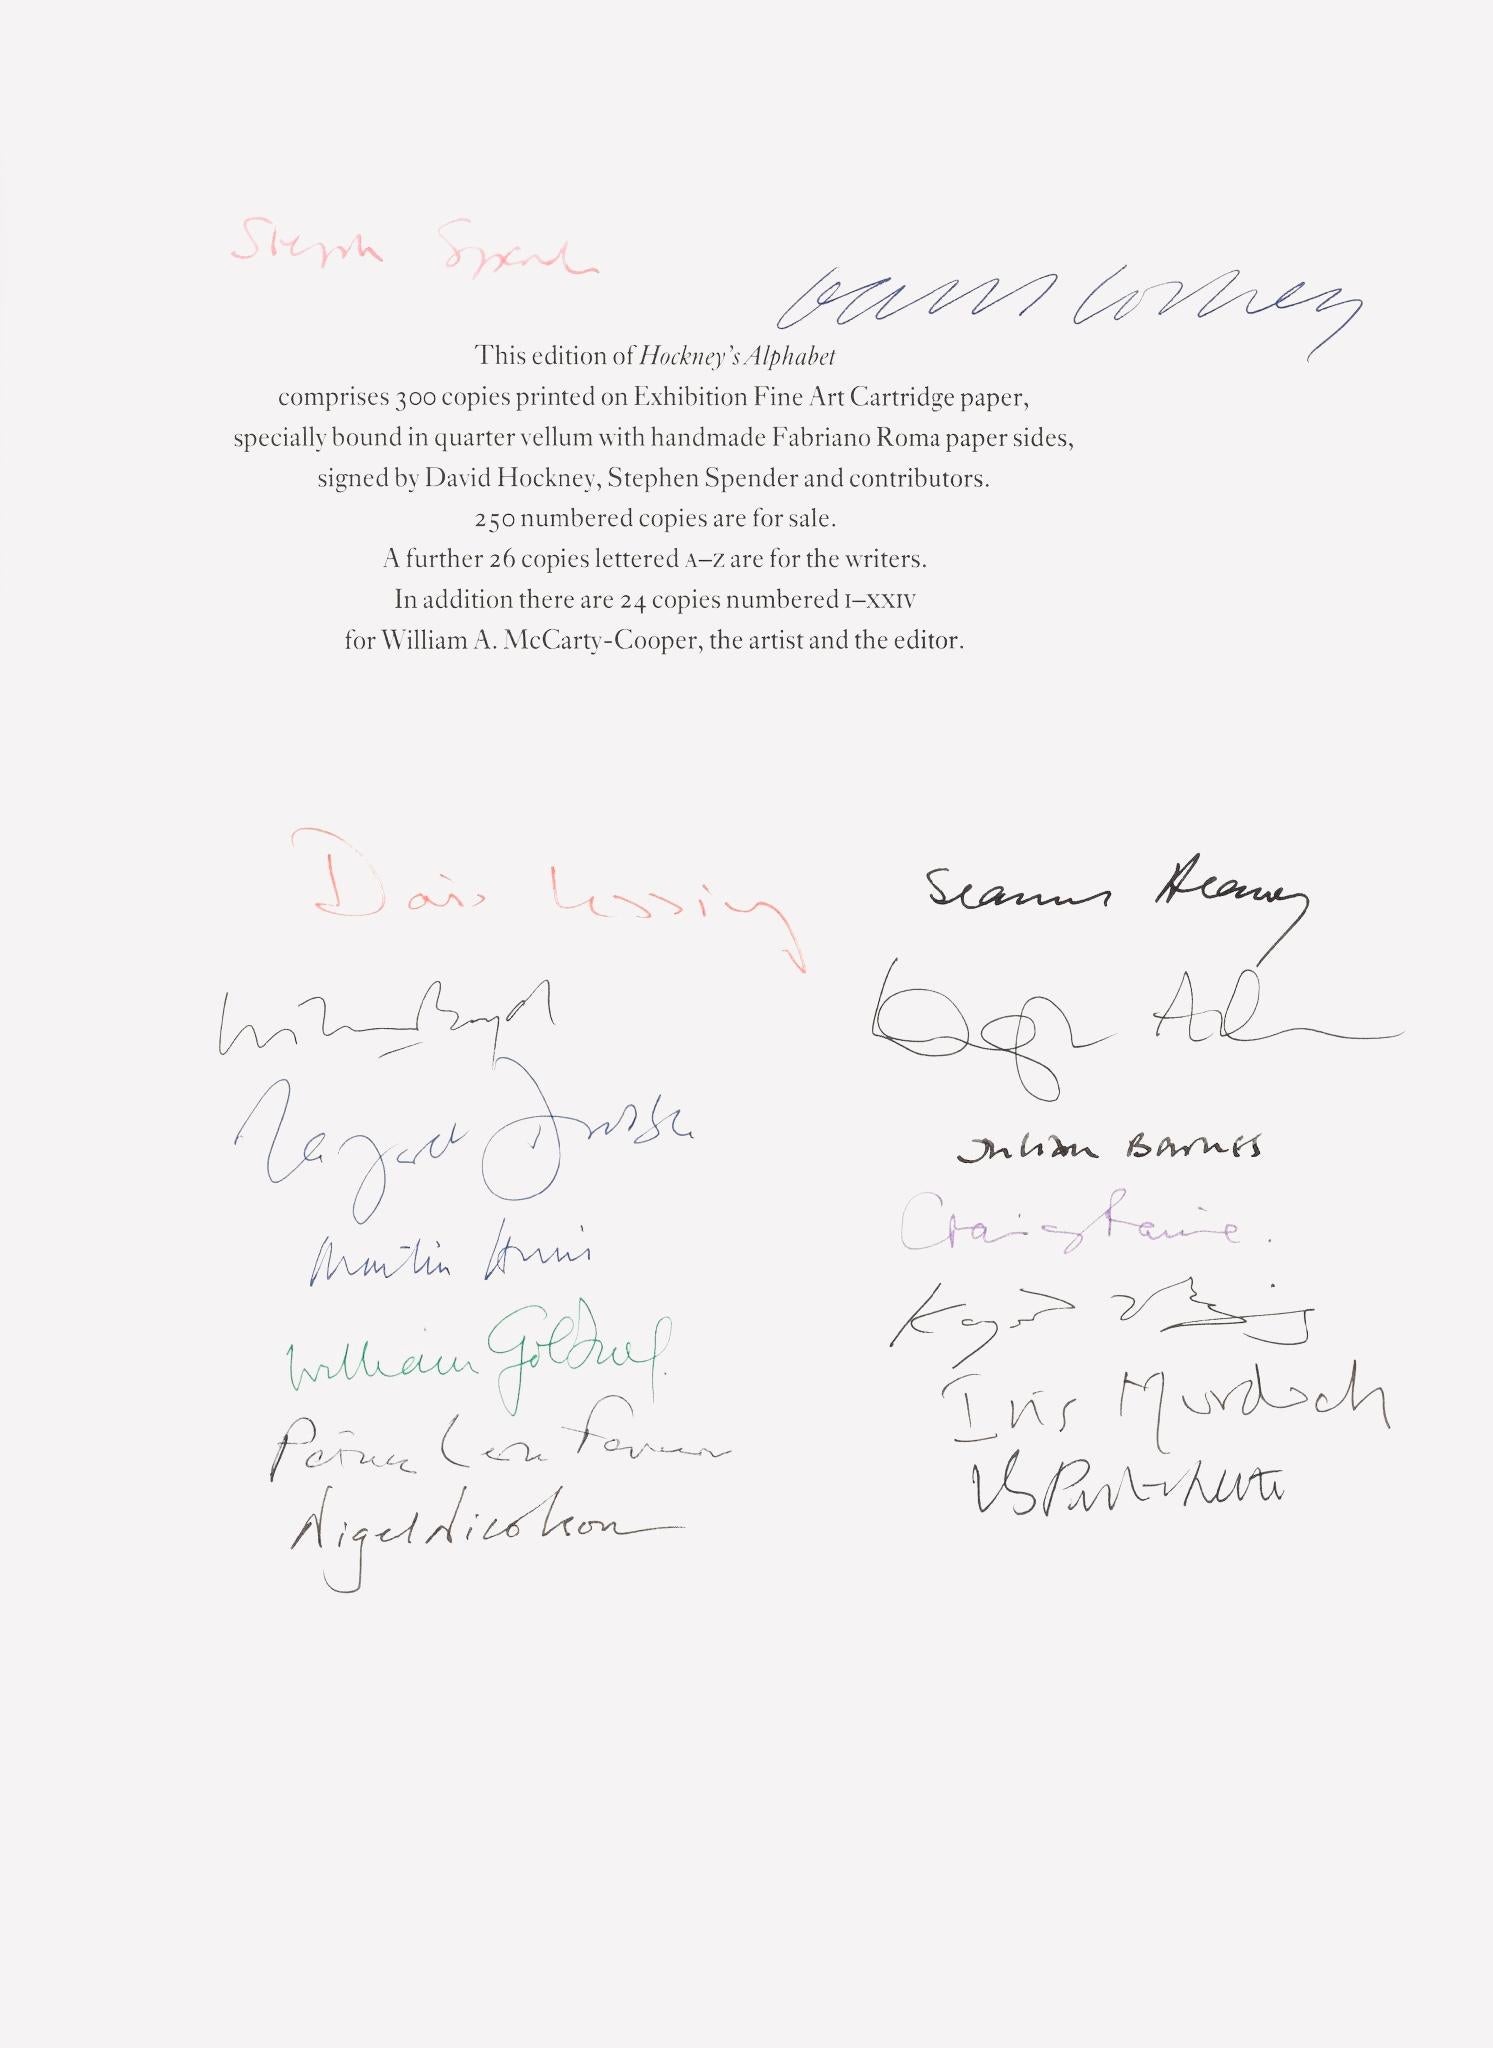 Stephen Spender
David Hockney
This edition of Hockney's Alphabet
comprises 300 copies printed on Exhibition Fine Art Cartridge paper,
specially bound in quarter vellum with handmade Fabriano Roma paper sides,
signed by David Hockney, Stephen Spender and contributors.
250 numbered copies are for sale.
A further 26 copies lettered A–Z are for the writers.
In addition there are 24 copies numbered I–XXIV
for William A. McCarty-Cooper, the artist and the editor.
Doris Lessing
Seamus Heaney
William Boyd
Douglas Adams
Margaret Drabble
Julian Barnes
Martin Amis
Craig Raine.
William Golding.
Kazuo Ishiguro
Patrick Leigh Fermor
Iris Murdoch
Nigel Nicolson
VS Pritchett